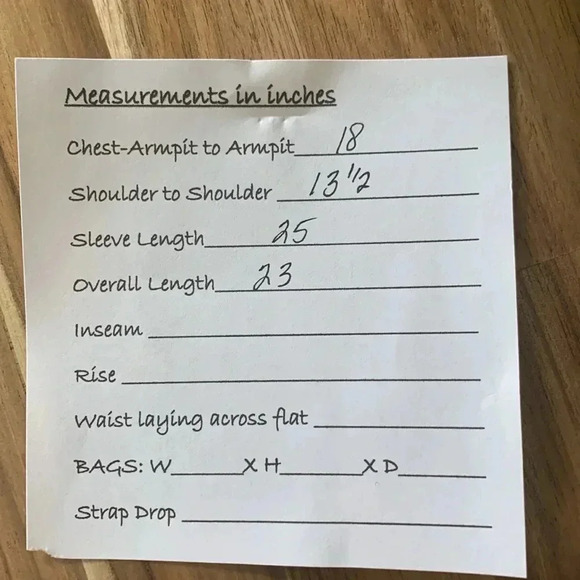 Measurements in inches
Chest-Armpit to Armpit 18
Shoulder to Shoulder 13 1/2
Sleeve Length 25
Overall Length 23
Inseam
Rise
Waist laying across flat
BAGS: W______X H______X D______
Strap Drop